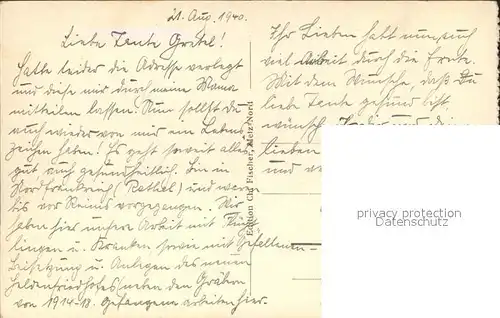 21. Aug. 1940.
Liebe Tante Gretel!
Hatte leider die Adresse verlegt
und diese mir durch meine Mama
mitteilen lassen. Nun sollst du
auch wieder von mir ein Lebens
zeichen haben! Es geht soweit alles
gut auch gesundheitlich. Bin in
Nordfrankreich (Rethel) und waren
bis vor Reims vorgegangen. Wir
haben hier unsere Arbeit mit Flücht
lingen u. Kranken sowie mit Gefallenen-
Beisetzung u. Anlegen des neuen
Heldenfriedhofes neben den Gräbern
von 1914-18. Gefangene arbeiten hier.
Ihr Lieben habt nun auch
viel Arbeit durch die Ernte.
Mit dem Wunsche, daß Du
liebe Tante gesund bist
wünsch
lieben
und
Edition Ch. Fischer, Metz-Nord
privacy protection
datenschutz